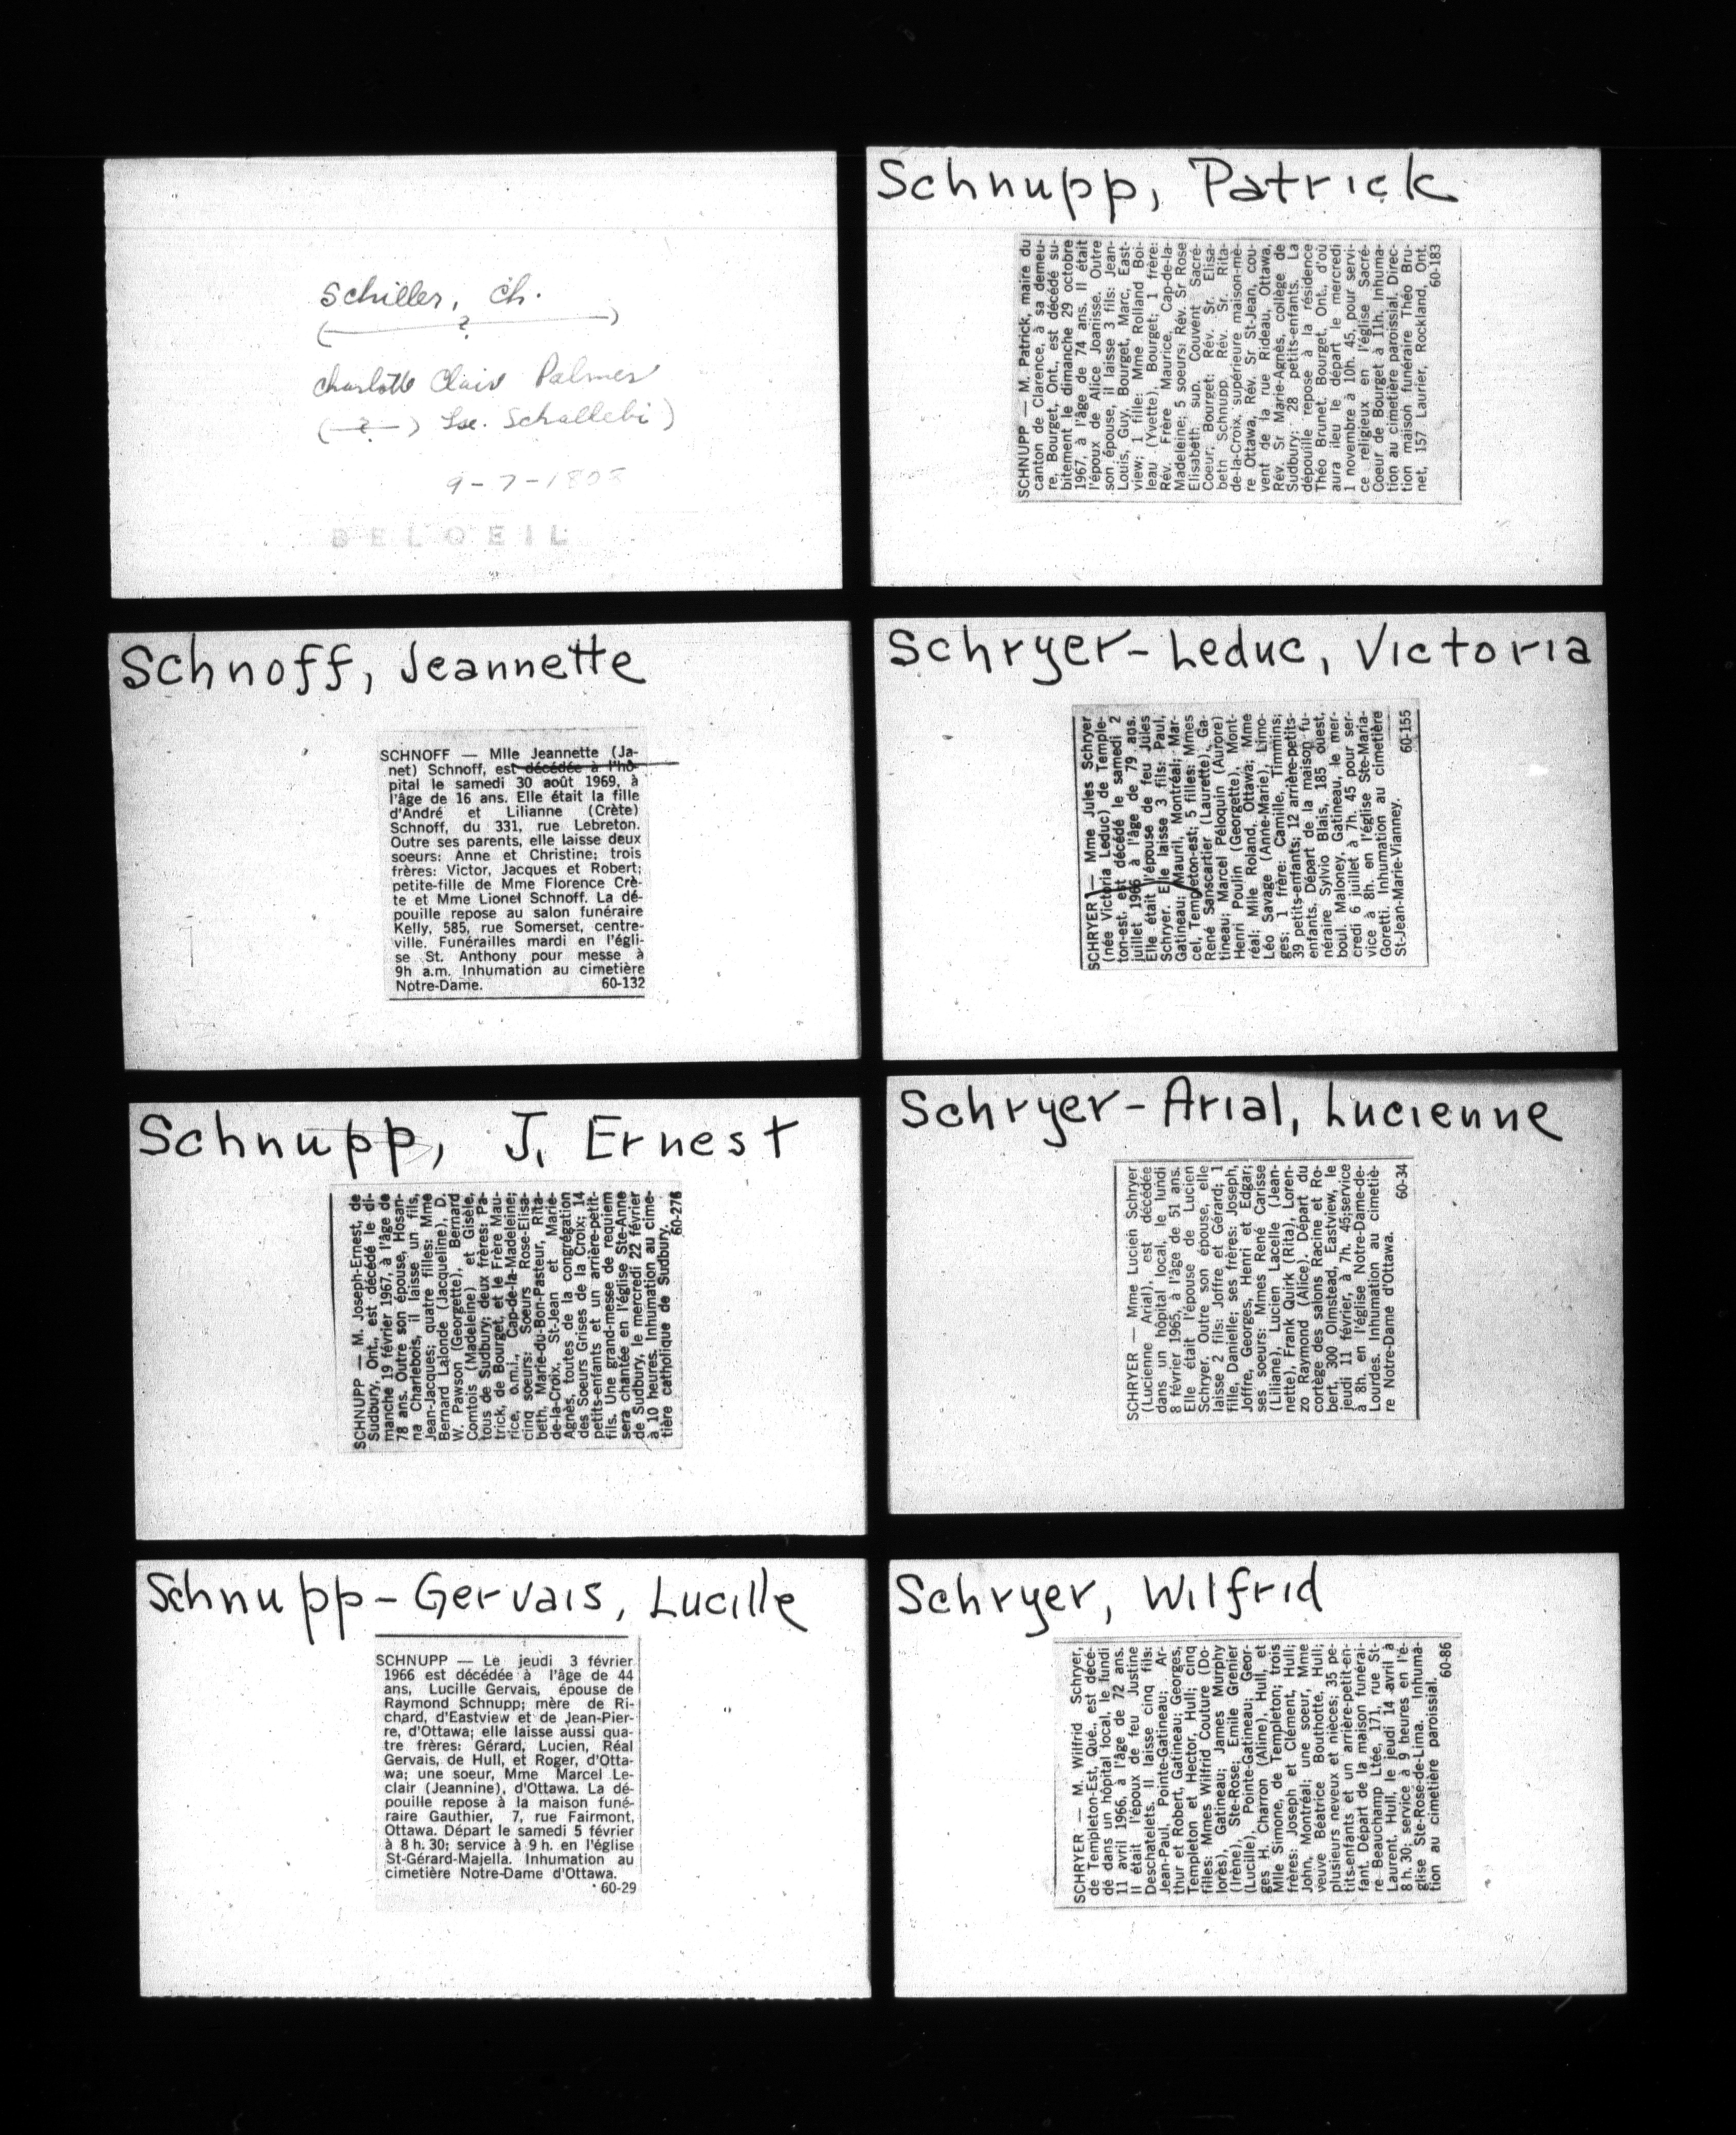 Schiller, Ch.
( ? )
Charlotte Clair Palmer
( ? ) Lse. Schallebi)
9-7-1808
BELOEIL
Schnoff, Jeannette
SCHNOFF — Mlle Jeannette (Ja-
net) Schnoff, est décédée à l'hô-
pital le samedi 30 août 1969, à
l'âge de 16 ans. Elle était la fille
d'André et Lilianne (Crète)
Schnoff, du 331, rue Lebreton.
Outre ses parents, elle laisse deux
soeurs: Anne et Christine; trois
frères: Victor, Jacques et Robert;
petite-fille de Mme Florence Crè-
te et Mme Lionel Schnoff. La dé-
pouille repose au salon funéraire
Kelly, 585, rue Somerset, centre-
ville. Funérailles mardi en l'égli-
se St. Anthony pour messe à
9h a.m. Inhumation au cimetière
Notre-Dame. 60-132
Schnupp, J. Ernest
SCHNUPP — M. Joseph-Ernest, de
Sudbury, Ont., est décédé le di-
manche 19 février 1967, à l'âge de
78 ans. Outre son épouse, Hosan-
na Charlebois, il laisse un fils,
Jean-Jacques; quatre filles: Mme
Bernard Lalonde (Jacqueline), D.
W. Pawson (Georgette), Bernard
Comtois (Madeleine) et Gisèle,
tous de Sudbury; deux frères: Pa-
trick, de Bourget, et le Frère Mau-
rice, o.m.i., Cap-de-la-Madeleine;
cinq soeurs: Soeurs Rose-Elisa-
beth, Marie-du-Bon-Pasteur, Rita-
de-la-Croix, St-Jean et Marie-
Agnès, toutes de la congrégation
des Soeurs Grises de la Croix; 14
petits-enfants et un arrière-petit-
fils. Une grand-messe de requiem
sera chantée en l'église Ste-Anne
de Sudbury, le mercredi 22 février
à 10 heures. Inhumation au cime-
tière catholique de Sudbury.
60-276
Schnupp-Gervais, Lucille
SCHNUPP — Le jeudi 3 février
1966 est décédée à l'âge de 44
ans, Lucille Gervais, épouse de
Raymond Schnupp; mère de Ri-
chard, d'Eastview et de Jean-Pier-
re, d'Ottawa; elle laisse aussi qua-
tre frères: Gérard, Lucien, Réal
Gervais, de Hull, et Roger, d'Otta-
wa; une soeur, Mme Marcel Le-
clair (Jeannine), d'Ottawa. La dé-
pouille repose à la maison funé-
raire Gauthier, 7, rue Fairmont,
Ottawa. Départ le samedi 5 février
à 8 h. 30; service à 9 h. en l'église
St-Gérard-Majella. Inhumation au
cimetière Notre-Dame d'Ottawa.
60-29
Schnupp, Patrick
SCHNUPP — M. Patrick, maire du
canton de Clarence, à sa demeu-
re, Bourget, Ont., est décédé su-
bitement le dimanche 29 octobre
1967, à l'âge de 74 ans. Il était
l'époux de Alice Joanisse. Outre
son épouse, il laisse 3 fils: Jean-
Louis, Guy, Bourget, Marc, East-
view; 1 fille: Mme Rolland Boi-
leau (Yvette), Bourget; 1 frère:
Rév. Frère Maurice, Cap-de-la-
Madeleine; 5 soeurs: Rév. Sr Rose
Elisabeth, sup. Couvent Sacré-
Coeur, Bourget; Rév. Sr. Elisa-
beth Schnupp, Rév. Sr. Rita-
de-la-Croix, supérieure maison-mè-
re Ottawa, Rév. Sr St-Jean, cou-
vent de la rue Rideau, Ottawa,
Rév. Sr Marie-Agnès, collège de
Sudbury; 28 petits-enfants. La
dépouille repose à la résidence
Théo Brunet, Bourget, Ont., d'où
aura ileu le départ le mercredi
1 novembre à 10h. 45, pour servi-
ce religieux en l'église Sacré-
Coeur de Bourget à 11h. Inhuma-
tion au cimetière paroissial. Direc-
tion maison funéraire Théo Bru-
net, 157 Laurier, Rockland, Ont.
60-183
Schryer-Leduc, Victoria
SCHRYER — Mme Jules Schryer
(née Victoria Leduc) de Temple-
ton-est, est décédé le samedi 2
juillet 1966 à l'âge de 79 ans.
Elle était l'épouse de feu Jules
Schryer. Elle laisse 3 fils: Paul,
Gatineau; Mauril, Montréal; Mar-
cel, Templeton-est; 5 filles: Mmes
René Sanscartier (Laurette), Ga-
tineau; Marcel Péloquin (Aurore)
Henri Poulin (Georgette), Mont-
réal; Mlle Roland, Ottawa; Mme
Léo Savage (Anne-Marie), Limo-
ges; 1 frère: Camille, Timmins;
39 petits-enfants; 12 arrière-petits-
enfants. Départ de la maison fu-
néraire Sylvio Blais, 185 ouest,
boul. Maloney, Gatineau, le mer-
credi 6 juillet à 7h. 45 pour ser-
vice à 8h. en l'église Ste-Maria-
Goretti. Inhumation au cimetière
St-Jean-Marie-Vianney. 60-155
Schryer-Arial, Lucienne
SCHRYER — Mme Lucien Schryer
(Lucienne Arial), est décédée
dans un hôpital local, le lundi
8 février 1965, à l'âge de 51 ans.
Elle était l'épouse de Lucien
Schryer. Outre son épouse, elle
laisse 2 fils: Joffre et Gérard; 1
fille, Danielle; ses frères: Joseph,
Joffre, Georges, Henri et Edgar;
ses soeurs: Mmes René Carisse
(Liliane), Lucien Lacelle (Jean-
nette), Frank Quirk (Rita), Loren-
zo Raymond (Alice). Départ du
cortège des salons Racine et Ro-
bert, 300 Olmstead, Eastview, le
jeudi 11 février, à 7h. 45;service
à 8h. en l'église Notre-Dame-de-
Lourdes. Inhumation au cimetiè-
re Notre-Dame d'Ottawa.
60-34
Schryer, Wilfrid
SCHRYER — M. Wilfrid Schryer,
de Templeton-Est, Qué., est décé-
dé dans un hôpital local, le lundi
11 avril 1966, à l'âge de 72 ans.
Il était l'époux de feu Justine
Deschatelets. Il laisse cinq fils:
Jean-Paul, Pointe-Gatineau; Ar-
thur et Robert, Gatineau; Georges,
Templeton et Hector, Hull; cinq
filles: Mmes Wilfrid Couture (Do-
lorès), Gatineau; James Murphy
(Irène), Ste-Rose; Emile Grenier
(Lucille), Pointe-Gatineau; Geor-
ges H. Charron (Aline), Hull, et
Mlle Simone, de Templeton; trois
frères: Joseph et Clément, Hull;
John, Montréal; une soeur, Mme
veuve Béatrice Bouthotte, Hull;
plusieurs neveux et nièces; 35 pe-
tits-enfants et un arrière-petit-en-
fant. Départ de la maison funérai-
re Beauchamp Ltée, 171, rue St-
Laurent, Hull, le jeudi 14 avril à
8 h. 30; service à 9 heures en l'é-
glise Ste-Rose-de-Lima. Inhuma-
tion au cimetière paroissial.
60-86